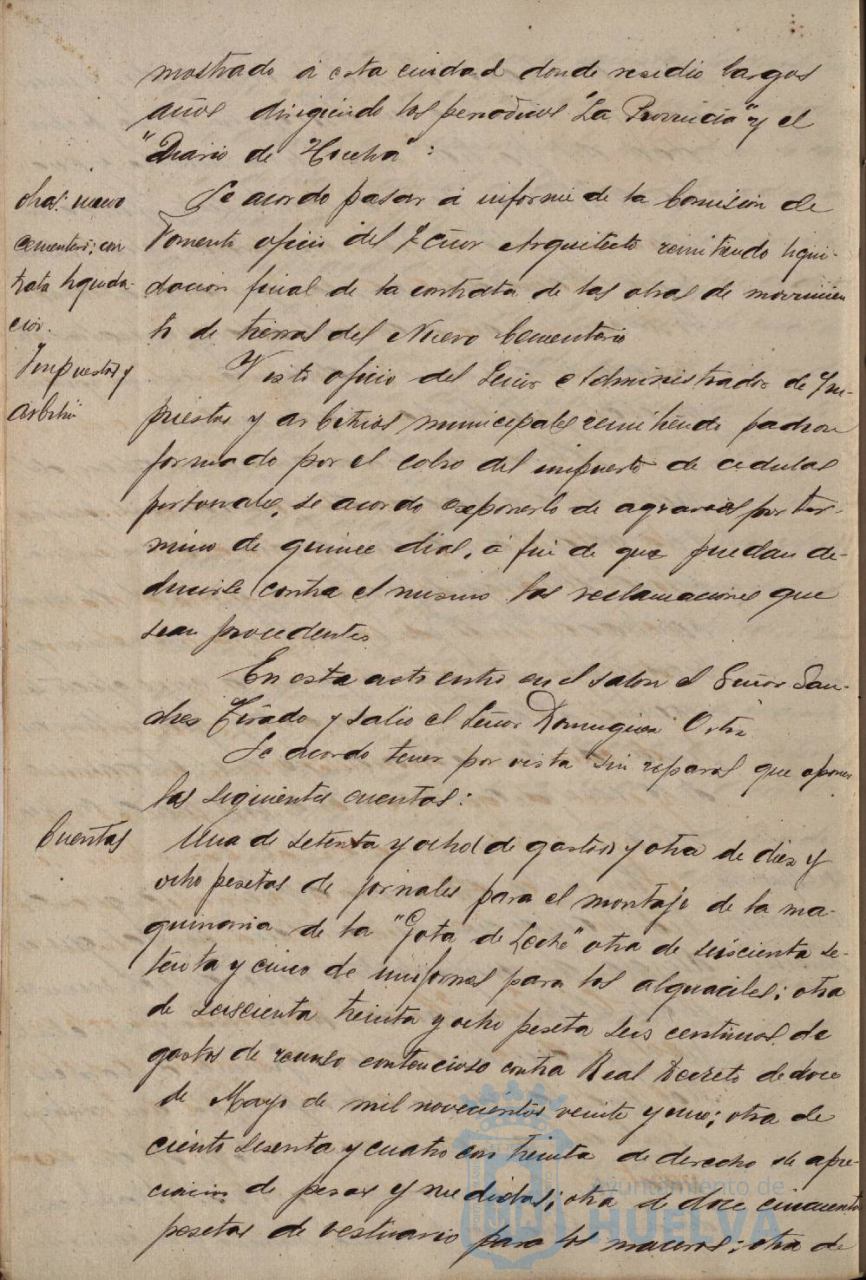 mostrado á esta ciudad donde residio largos
años dirigiendo los periodicos "La Provincia" y el
"Diario de Huelva":
obras nuevo
cementerio; con
trata liquida-
cion.
Se acordo pasar á informe de la Comision de
Fomento oficio del Señor Arquitecto remitiendo liqui-
dacion final de la contrata de las obras de movimien
to de tierras del Nuevo Cementerio
Impuestos y
arbitrios
Visto oficio del Señor Administrador de Im-
puestos y arbitrios municipales remitiendo padron
formado por el cobro del impuesto de cedulas
personales, se acordo exponerlo de agravios por ter-
mino de quince dias, á fin de que puedan de-
ducirse contra el mismo las reclamaciones que
sean procedentes
En este acto entro en el salon el Señor San-
ches Tirado y salio el Señor Dominguez Ortiz
Se acordo tener por vista sin reparos que oponer
las siguientes cuentas:
Cuentas
Una de setenta y ocho de gastos y otra de diez y
ocho pesetas de jornales para el montaje de la ma-
quinaria de la "Gota de Leche" otra de seiscienta se-
tenta y cinco de uniformes para los alguaciles; otra
de seiscienta treinta y ocho peseta seis centimos de
gastos de recurso contencioso contra Real Decreto de doce
de Mayo de mil novecientos veinte y uno; otra de
ciento sesenta y cuatro con treinta de derecho de apre-
ciacion de pesas y medidas; otra de doce cincuenta
pesetas de vestuario para los maceros; otra de
Ayuntamiento de
HUELVA